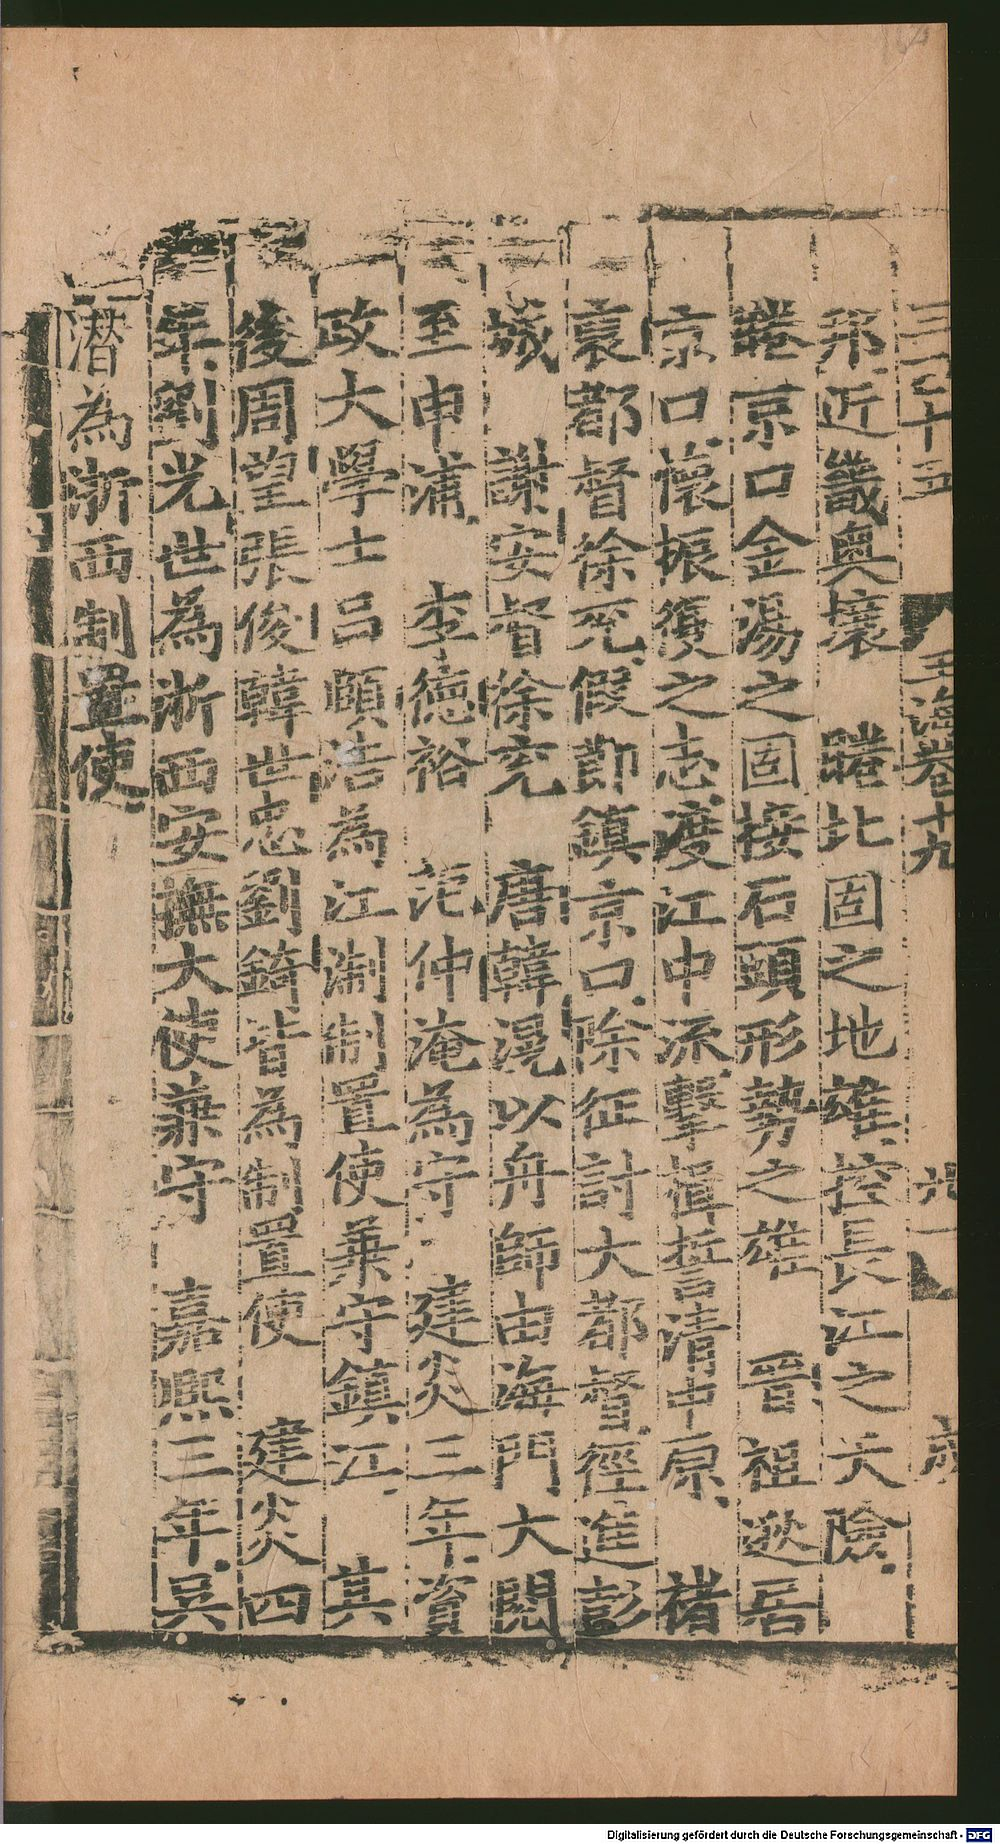 三百十五 玉海卷十九 九一
邦近畿奧壤 睠北固之地雄控長江之天險
睠京口金湯之固接石頭形勢之雄 晉祖逖居
京口懷振復之志渡江中流擊楫誓清中原 褚
裒都督徐兗假節鎮京口除征討大都督徑進彭
城 謝安督徐兗 唐韓滉以舟師由海門大閱
至申浦 李德裕 范仲淹為守 建炎三年資
政大學士呂頤浩為江淛制置使兼守鎮江 其
後周望張俊韓世忠劉錡皆為制置使 建炎四
年劉光世為浙西安撫大使兼守 嘉熙三年吳
潛為浙西制置使
Digitalisierung gefördert durch die Deutsche Forschungsgemeinschaft - DFG